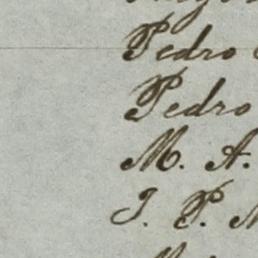 Pedro
Pedro
M. A.
J. P.